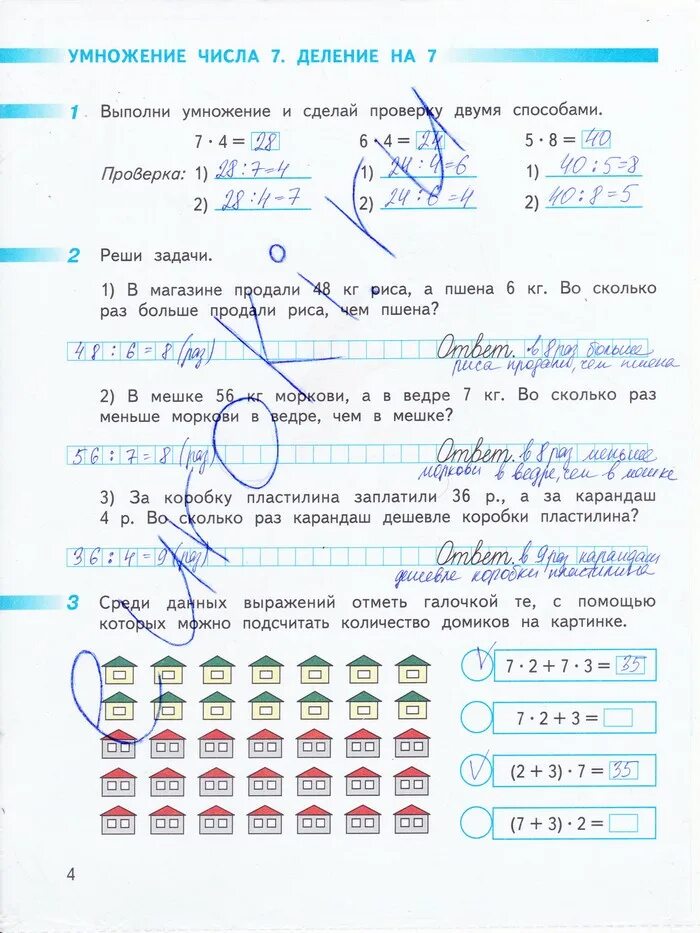 УМНОЖЕНИЕ ЧИСЛА 7. ДЕЛЕНИЕ НА 7
1 Выполни умножение и сделай проверку двумя способами.
7 · 4 = 28 6 · 4 = 24 5 · 8 = 40
Проверка: 1) 28 : 7 = 4 1) 24 : 4 = 6 1) 40 : 5 = 8
2) 28 : 4 = 7 2) 24 : 6 = 4 2) 40 : 8 = 5
2 Реши задачи.
1) В магазине продали 48 кг риса, а пшена 6 кг. Во сколько
раз больше продали риса, чем пшена?
48 : 6 = 8 (раз) Ответ. в 8 раз больше
риса продали, чем пшена
2) В мешке 56 кг моркови, а в ведре 7 кг. Во сколько раз
меньше моркови в ведре, чем в мешке?
56 : 7 = 8 (раз) Ответ. в 8 раз меньше
моркови в ведре, чем в мешке
3) За коробку пластилина заплатили 36 р., а за карандаш
4 р. Во сколько раз карандаш дешевле коробки пластилина?
36 : 4 = 9 (раз) Ответ. в 9 раз карандаш
дешевле коробки пластилина
3 Среди данных выражений отметь галочкой те, с помощью
которых можно подсчитать количество домиков на картинке.
7 · 2 + 7 · 3 = 35
7 · 2 + 3 =
(2 + 3) · 7 = 35
(7 + 3) · 2 =
4